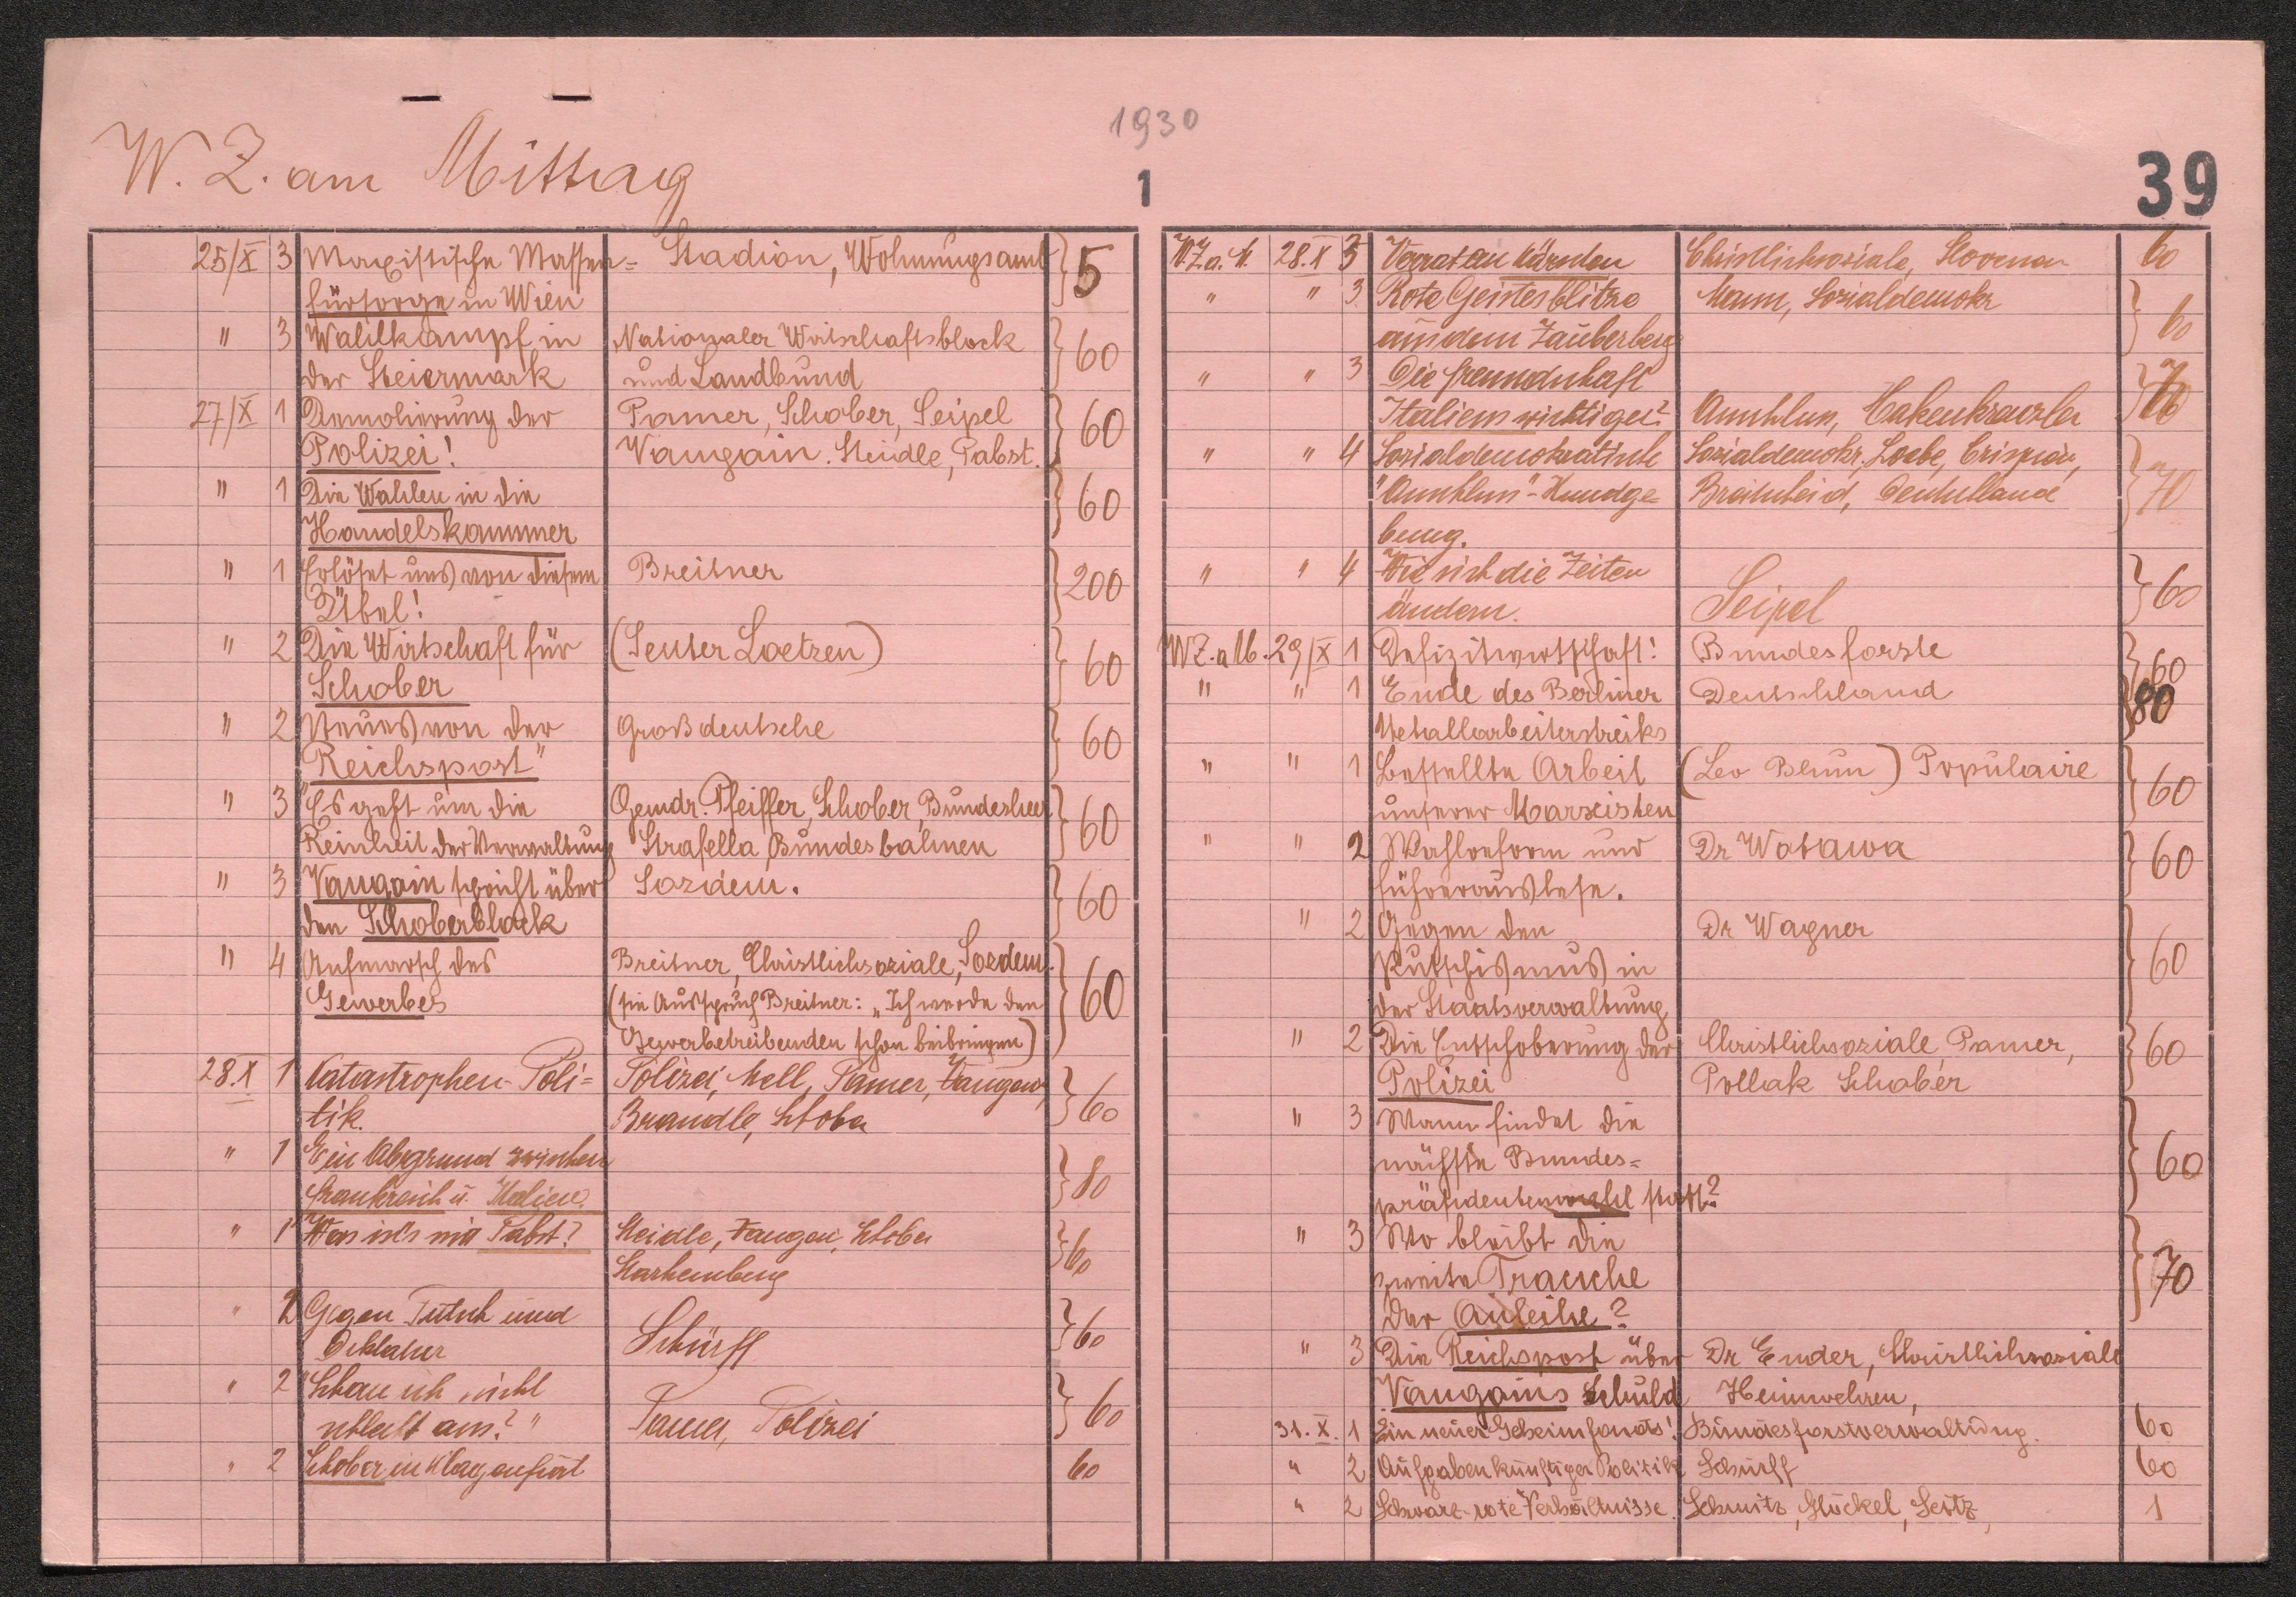 1930
W. Z. am Mittag
1
39
25/X 3 Marxistische Massen= Stadion, Wohnungsamt 5
fürsorge in Wien
" 3 Wahlkampf in Nationaler Wirtschaftsblock 60
der Steiermark und Landbund
27/X 1 Demolierung der Pamer, Schober, Seipel 60
Polizei! Vaugoin. Steidle, Pabst.
" 1 Die Wahlen in die 60
Handelskammer
" 1 Erlöset uns von diesem Breitner 200
Übel!
" 2 Die Wirtschaft für (Senter Loetzen) 60
Schober
" 2 Neues von der Großdeutsche 60
"Reichspost"
" 3 Es geht um die Gemdr. Pfeiffer, Schober, Bundesheer 60
Reinheit der Verwaltung Strafella, Bundesbahnen
" 3 Vaugoin spricht über Sozdem. 60
den Schoberblock
" 4 Aufmarsch des Breitner, Christlichsoziale, Sozdem. 60
Gewerbes (sie Ausspruch Breitner: "Ich werde den
Gewerbetreibenden schon beibringen)
28.X 1 Katastrophen-Poli= Polizei, Mell, Pamer, Vaugoin, 60
tik. Brandle, Schober
" 1 Ein Abgrund zwischen 80
Frankreich u. Italien.
" 1 Was ist's mit Pabst? Steidle, Vaugoin, Schober 60
Starhemberg
" 2 Gegen Putsch und Schürff 60
Diktatur
" 2 "Schau ich nicht
schlecht aus?" Pamer, Polizei 60
" 2 Schober in Klagenfurt 60
W.Z.a.M. 28.X 3 Verrat an Kärnten Christlichsoziale, Slovenen 60
" " 3 Rote Geistesblitze Mann, Sozialdemokr 60
aus dem Zauberberg
" " 3 Die Freundschaft
Italiens wichtiger? Anschluss, Hakenkreuzler
" " 4 Sozialdemokratische Sozialdemokr, Loebe, Crispien, 70
"Anschluss"-Kundge= Breitscheid, Deutschland
bung.
" " 4 Wie sich die Zeiten 60
ändern. Seipel
WZ.a M. 29/X 1 Defizitwirtschaft! Bundesforste 60
" " 1 Ende des Berliner Deutschland 80
Metallarbeiterstreiks
" " 1 Bestellte Arbeit (Leo Blum) Populaire 60
unserer Marxisten
" " 2 Wahlreform und Dr Watawa 60
Führerauslese.
" 2 Gegen den Dr Wagner 60
Putschismus in
der Staatsverwaltung
" 2 Die Entschoberung der Christlichsoziale, Pamer, 60
Polizei Pollak Schober
" 3 Wann findet die 60
nächste Bundes=
präsidentenwahl statt?
" 3 Wo bleibt die 70
zweite Tranche
der Anleihe?
" 3 Die Reichspost über Dr Ender, Christlichsoziale
Vaugoins Schuld Heimwehren,
31. X. 1 Ein neuer Geheimfonds! Bundesforstverwaltung. 60
" 2 Aufgaben künftiger Politik Schürff 60
" 2 Schwarz-rote Verhältnisse. Schmitz, Stöckel, Seitz, 1